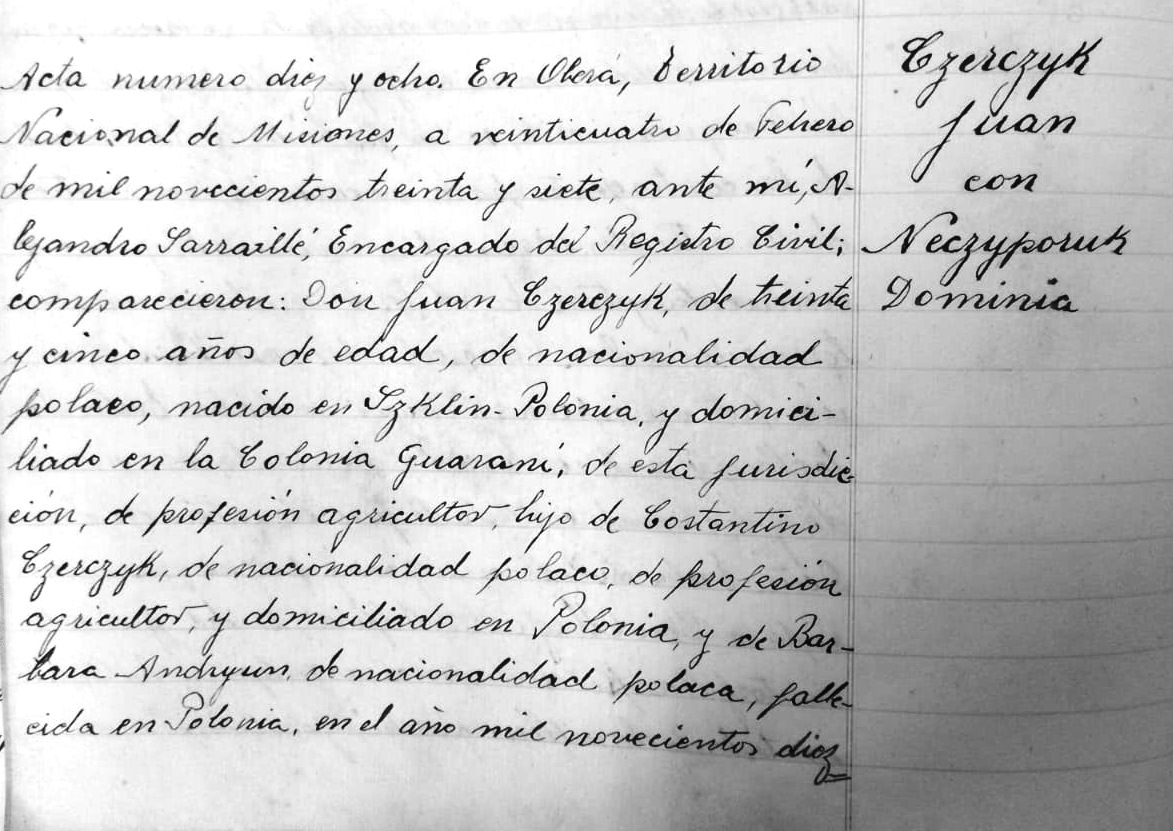 Acta numero diez y ocho. En Oberá, Territorio
Nacional de Misiones, a veinticuatro de Febrero
de mil novecientos treinta y siete, ante mí, A-
lejandro Sarraillé, Encargado del Registro Civil;
comparecieron: Don Juan Czerczyk, de treinta
y cinco años de edad, de nacionalidad
polaco, nacido en Szklin-Polonia, y domici-
liado en la Colonia Guaraní, de esta jurisdic-
ción, de profesión agricultor, hijo de Costantino
Czerczyk, de nacionalidad polaco, de profesión
agricultor, y domiciliado en Polonia, y de Bar-
bara Andryun, de nacionalidad polaca, falle-
cida en Polonia, en el año mil novecientos diez
Czerczyk
Juan
con
Neczyporuk
Dominia